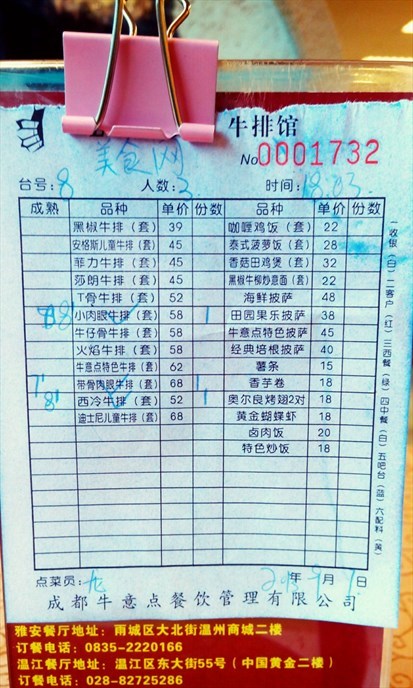 牛排馆
美食网
No0001732
台号:8 人数:3 时间:18:03
成熟 品种 单价 份数 品种 单价 份数
黑椒牛排（套） 39 咖喱鸡饭（套） 22
安格斯儿童牛排（套） 45 泰式菠萝饭（套） 28
菲力牛排（套） 45 香菇田鸡煲（套） 32
莎朗牛排（套） 45 黑椒牛柳炒意面（套） 22
T骨牛排（套） 52 海鲜披萨 48
8 8 小肉眼牛排（套） 58 1 田园果乐披萨 38
牛仔骨牛排（套） 58 牛意点特色披萨 45
火焰牛排（套） 58 经典培根披萨 40
牛意点特色牛排（套） 62 薯条 15
7' 带骨肉眼牛排（套） 68 1 香芋卷 18
8' 西冷牛排（套） 52 1 奥尔良烤翅2对 18
迪士尼儿童牛排（套） 68 黄金蝴蝶虾 18
卤肉饭 20
特色炒饭 18
一收银（白）二客户（红）三西餐（绿）四中餐（白）五吧台（蓝）六配料（黄）
点菜员: 年9月1日
成都牛意点餐饮管理有限公司
雅安餐厅地址：雨城区大北街温州商城二楼
订餐电话：0835-2220166
温江餐厅地址：温江区东大街55号（中国黄金二楼）
订餐电话：028-82725286